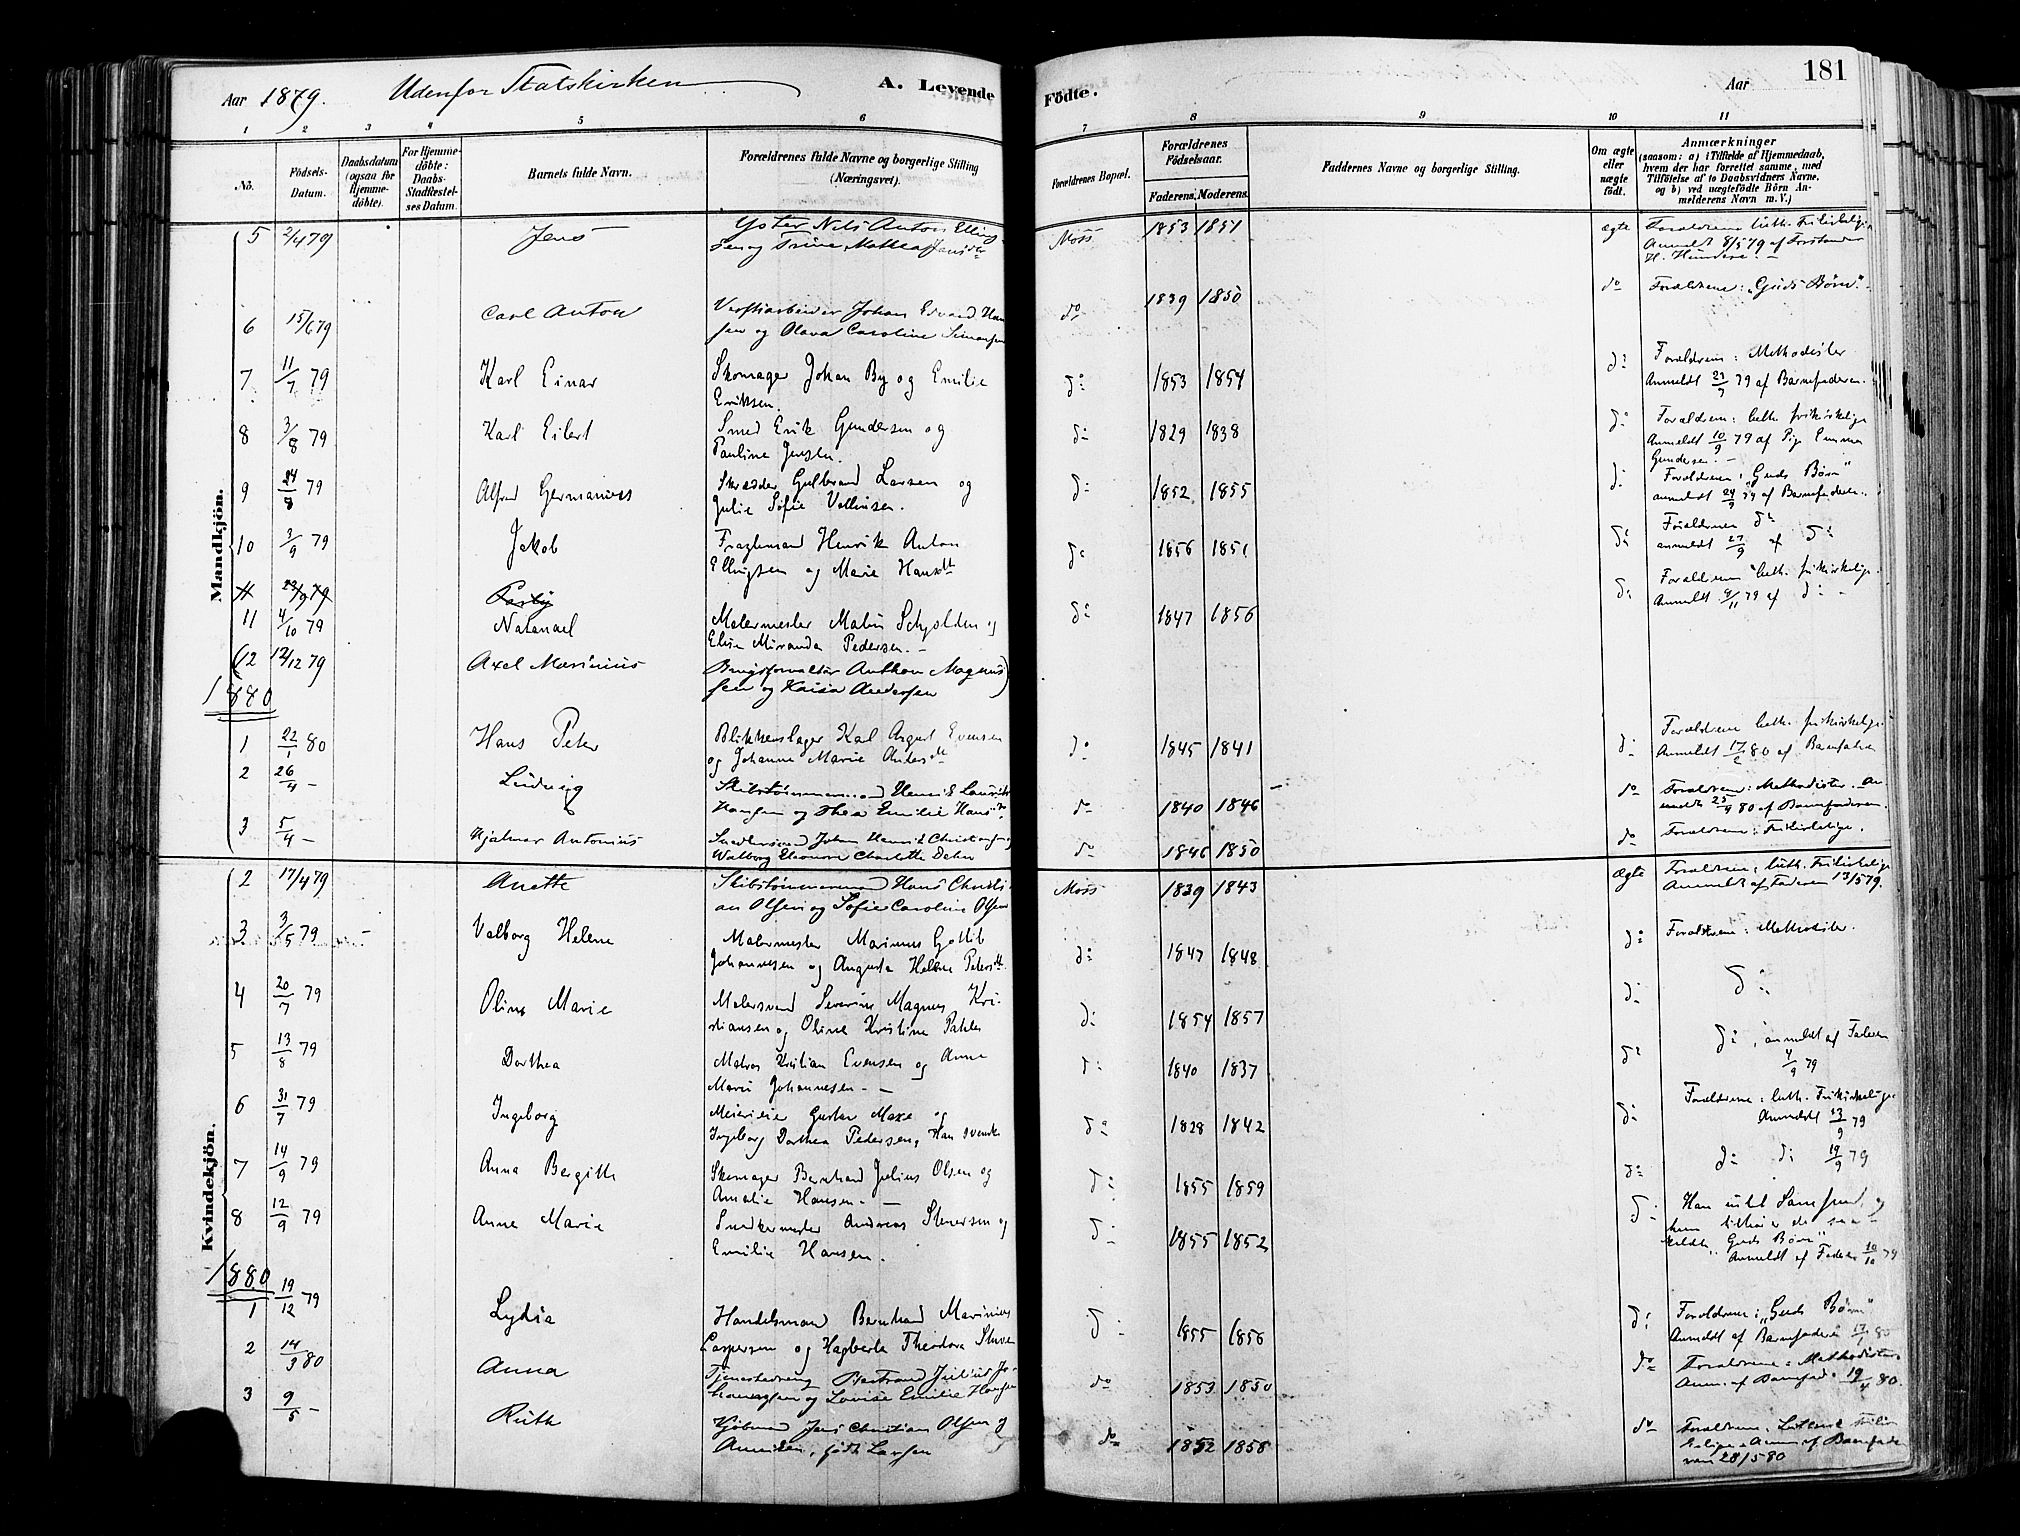 Aar 1879. Udenfor Statskirken A. Levende Födte. Aar 181
1 2 3 4 5 6 7 8 9 10 11
No.
Födsels-Datum.
Daabsdatum (ogsaa for Hjemme-döbte).
For Hjemme-döbte: Daabs-Stadfæstel-ses Datum.
Barnets fulde Navn.
Forældrenes fulde Navne og borgerlige Stilling (Næringsvei).
Forældrenes Bopæl.
Forældrenes Födselsaar.
Faderens. Moderens.
Faddernes Navne og borgerlige Stilling.
Om ægte eller uægte födt.
Anmærkninger (saasom: a) i Tilfælde af Hjemmedaab, hvem der har forrettet samme, med Tilföielse af to Daabsvidners Navne, og b) ved uægtefödte Börn An-melderens Navn m. V.)
Mandkjön.
5 2/4 79 Jens Nils Anton Elling-
sen og Trine Mathea Jens dtr Moss 1853 1851 ægte Forældrene luth. Frikirkelige
Anmeldt 8/5 79 af Forstander
H. Hundere. -
6 15/6 79 Carl Anton Verftsarbeider Johan Edvard Han
sen og Olava Caroline Simonsen do 1839 1850 do Forældrene: "Guds Børn".
7 11/7 79 Karl Einar Skomager Johan By og Emilie
Eriksen. do 1853 1854 do Forældrene: Methodister
Anmeldt 23/9 79 af Barnefaderen.
8 3/8 79 Karl Eilert Smed Erik Gundersen og
Pauline Jensen. do 1829 1838 do Forældrene: luth. frikirkelige
Anmeldt 10/9 79 af Pige Emma
Gundersen. -
9 24/8 79 Alfred Germanius Skrædder Gulbrand Larsen og
Julie Sofie Vollensen. do 1852 1855 do Forældrene: "Guds Børn"
anmeldt 24/9 79 af Barnefaderen.
10 3/9 79 Jakob Henrik Anton
Ellingsen og Marie Hansdtr do 1856 1851 do Forældrene do
anmeldt 27/9 af do
11 4/10 79 Natanael Malermester Schjolden og
Elise Miranda Pedersen. - do 1847 1856 do Forældrene luth. frikirkelige.
Anmeldt 4/11 79 af do -
(12 12/12 79 Axel Marinius Brugsforvalter Anthon Magnus
sen og Kaisa Andersen)
1880
1 22/1 80 Hans Peter Blikkenslager Karl August Evensen
og Johanne Marie Anders dtr do 1845 1841 do Forældrene luth. frikirkelige.
Anmeldt 17/2 80 af Barnefaderen
2 26/4 - Ludvig Skibstømmermand Henrik Laurits
Hansen og Thea Emilie Hans dtr do 1840 1846 - do Forældrene: Methodister. An
meldt 25/9 80 af Barnefaderen.
3 5/4 - Hjalmar Antonius Snedkersvend Johan Henrik Christensen og
Walborg Eleonore Charlotte Dehn do 1846 1850 do Forældrene: Frikirkelige.
Kvindekjön.
2 17/4 79 Anette Skibstømmermand Hans Christi-
an Olsen og Sofie Caroline Olsen Moss 1839 1843 ægte Forældrene; luth. Frikirkelige
Anmeldt af Faderen 13/5 79.
3 3/5 79 - Valborg Helene Malermester Marinus Gotlib
Johannesen og Augusta Helene Peters dtr do 1847 1848 do Forældrene: Methodister.
4 20/7 79 Oline Marie Malersvend Severin Magnus Kri-
stiansen og Oline Kristine do 1854 1857 do do
5 13/8 79 Dorthea Matros Kristian Evensen og Anne
Marie Johannesen. - do 1840 1837 do do, anmeldt af Faderen
4/9 79
6 31/7 79 Ingeborg Meierieier Gustav Maxe og
Ingeborg Dorthea Pedersen, Han svensk do 1828 1842 do Forældrene: luth. Frikirkelige
Anmeldt 13/9 79
7 14/9 79 Anna Bergitte Skomager Bernhard Julius Olsen og
Amalie Hansen. - do 1855 1859 do do do 19/9 79
8 12/9 79 Anne Marie Snedkermester Andreas Stenersen og
Emilie Hansen. do 1855 1852 do Han intet Samfund, og
hun tilhører de saa-
kaldte "Guds Børn"
Anmeldt af Faderen 10/10 79
1880
1 19/12 79 Lydia Handelsmand Bernhard Marinius
Caspersen og Hagberta Theodora do 1855 1856 do Forældrene: "Guds Børn"
Anmeldt af Barnefaderen 17/1 80
2 14/3 80 Anna Bertrand Julius Jo-
hannessen og Lovise Emilie Hansen do 1853 1850 do Forældrene: Methodister.
Anm. af Barnefad. 19/4 80.
3 9/5 - Ruth Kjøbmand Jens Christian Olsen og
født Larsen do 1852 1858 do Forældrene: Lutherske Frikir
kelige. Anm. af Barnefade
ren 28/5 80